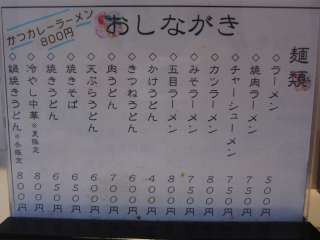 かつカレーラーメン
800円
おしながき
麺類
◇ラーメン 500円
◇焼肉ラーメン 750円
◇チャーシューメン 750円
◇カツラーメン
◇みそラーメン 750円
◇五目ラーメン 800円
◇かけうどん 400円
◇きつねうどん 600円
◇肉うどん 700円
◇天ぷらうどん 600円
◇焼きそば 650円
◇焼きうどん 650円
◇冷やし中華※夏限定 800円
◇鍋焼きうどん※冬限定 800円